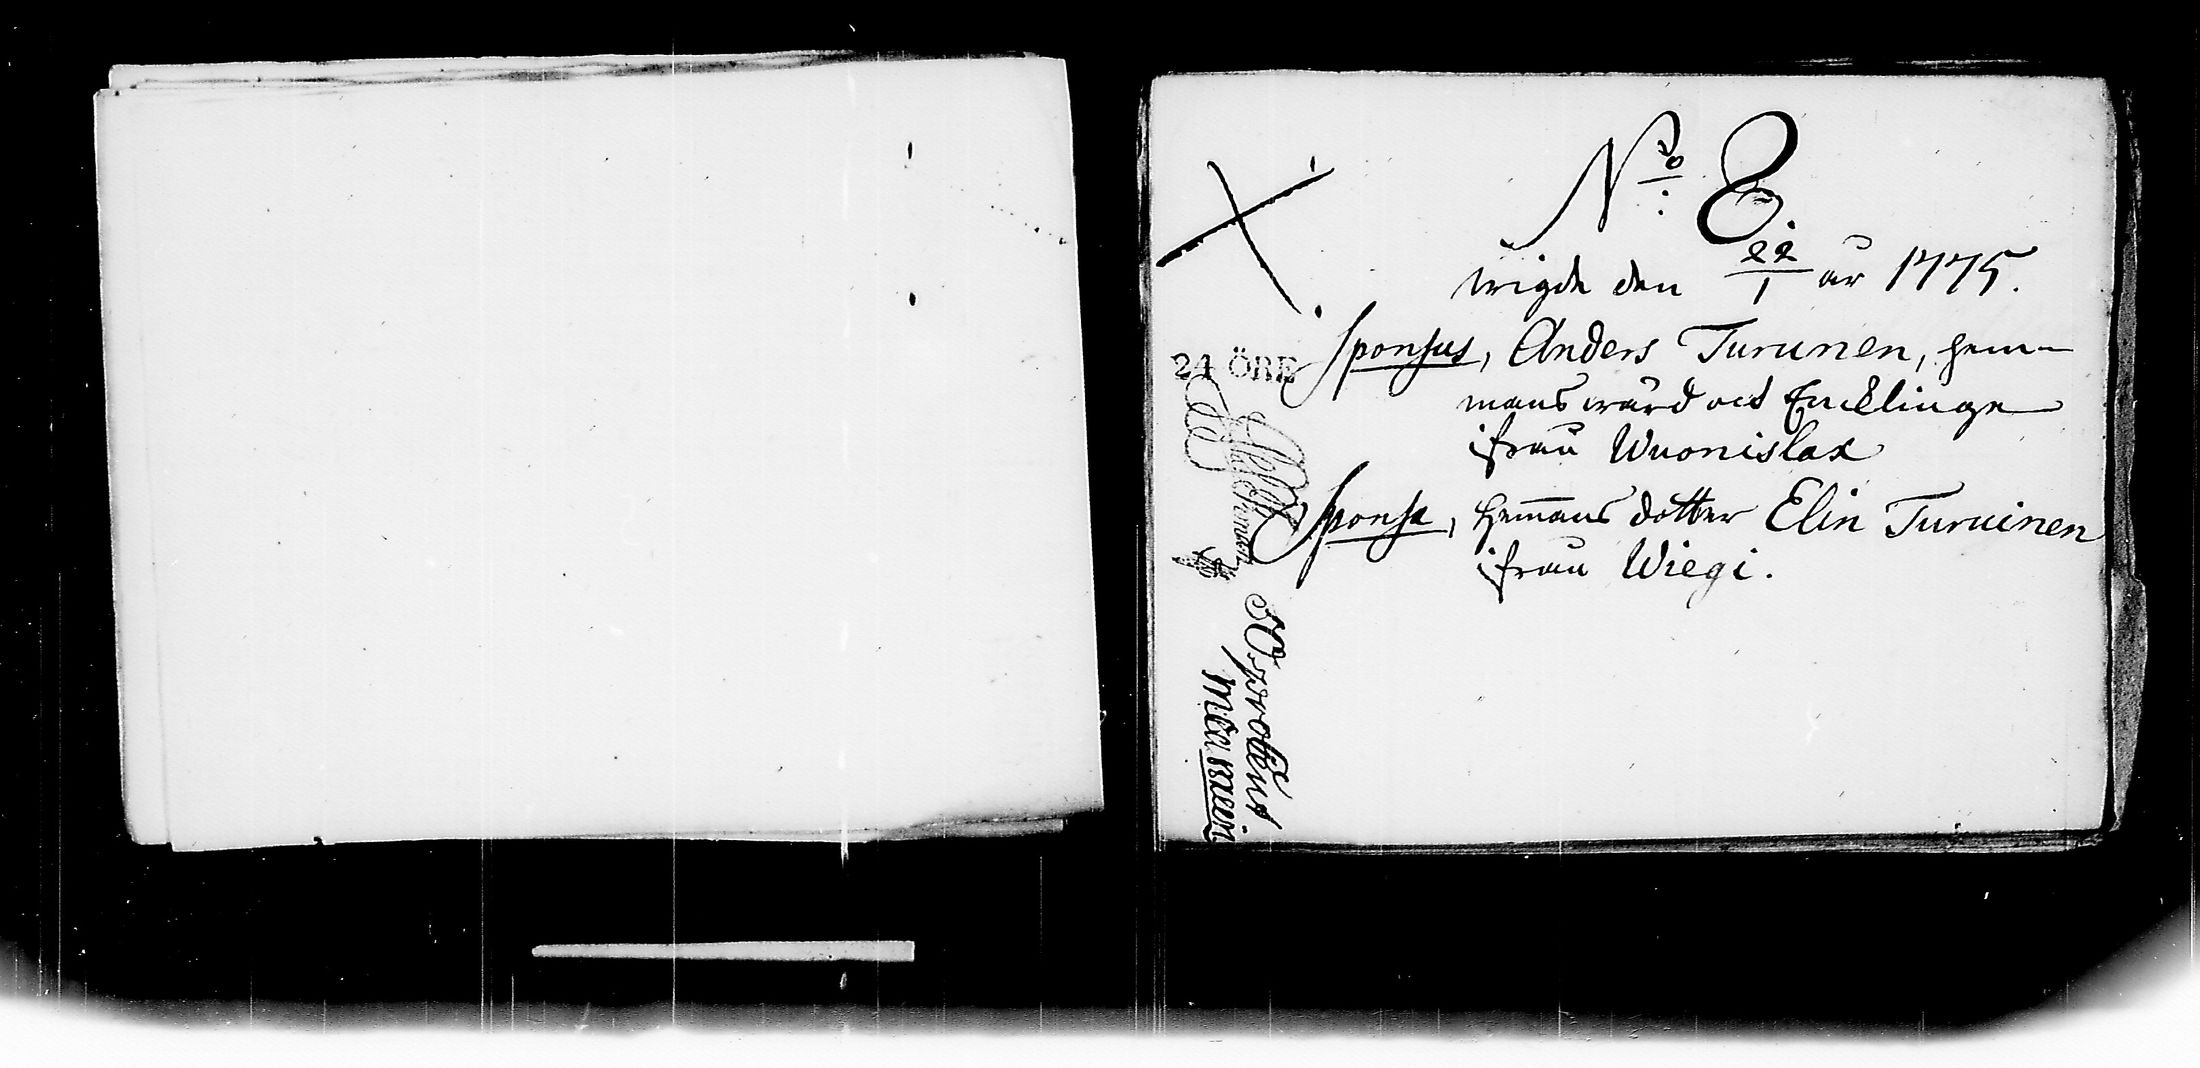 No 8.
wigde den 22/1 år 1775.
Sponsus, Anders Turunen, hem-
mans wärd och Enckling
ifrån Wuonislax
Sponsa, hem̄ans dotter Elin Turuinen
ifrån Wiegi.
24 ÖRE